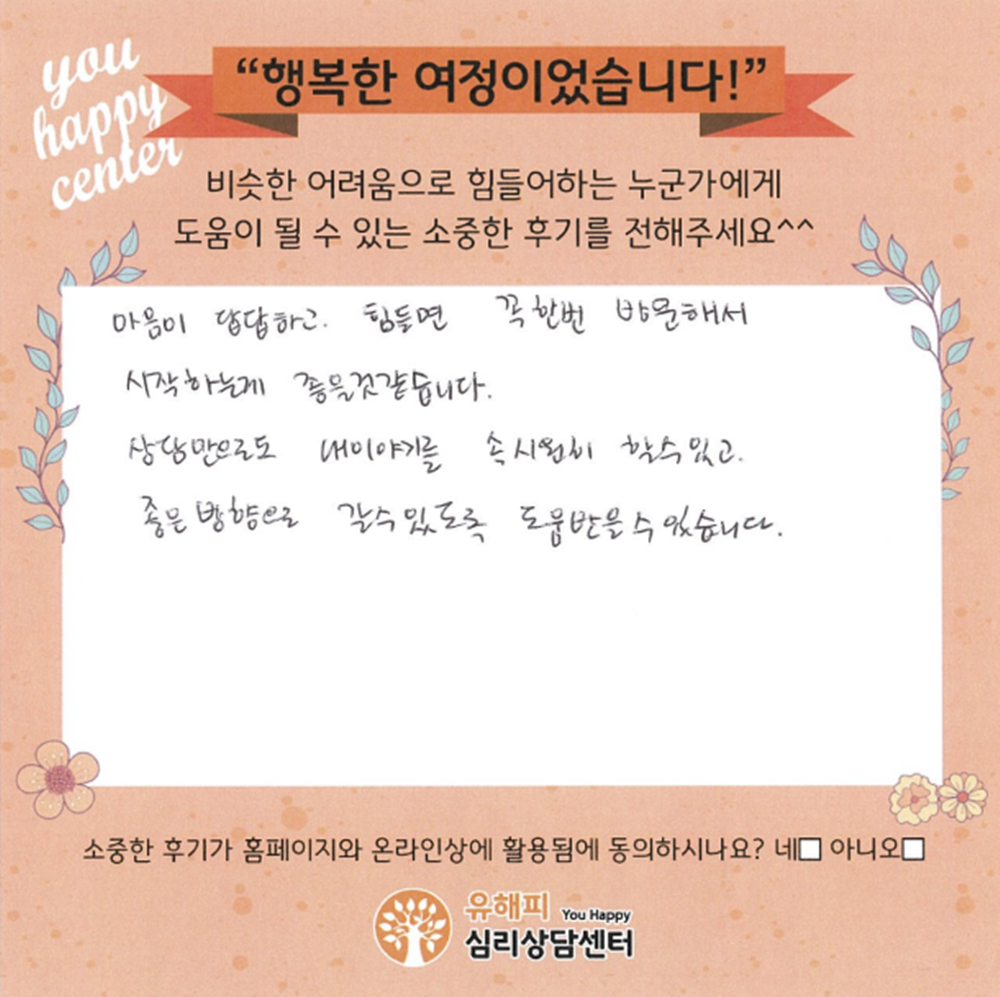 you
happy
center
“행복한 여정이었습니다!”
비슷한 어려움으로 힘들어하는 누군가에게
도움이 될 수 있는 소중한 후기를 전해주세요^^
마음이 답답하고. 힘들면 꼭한번 방문해서
시작하는게 좋을것같습니다.
상담만으로도 내이야기를 속시원히 할수있고.
좋은방향으로 갈수있도록 도움받을수있습니다.
소중한 후기가 홈페이지와 온라인상에 활용됨에 동의하시나요? 네□ 아니오□
유해피 You Happy
심리상담센터